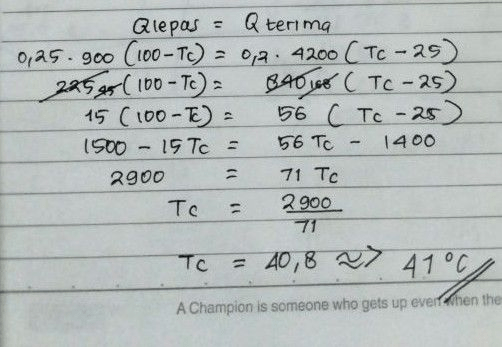 Qlepas = Qterima
0,25 . 900 (100 - Tc) = 0,2 . 4200 (Tc - 25)
225 45 (100 - Tc) = 840 168 (Tc - 25)
15 (100 - Tc) = 56 (Tc - 25)
1500 - 15 Tc = 56 Tc - 1400
2900 = 71 Tc
Tc = 2900
71
Tc = 40,8 ≈> 41°C
A Champion is someone who gets up even when the